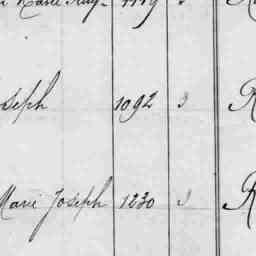 Marie Aug 1119
Joseph 1092 3 R
Marie Joseph 1230 R